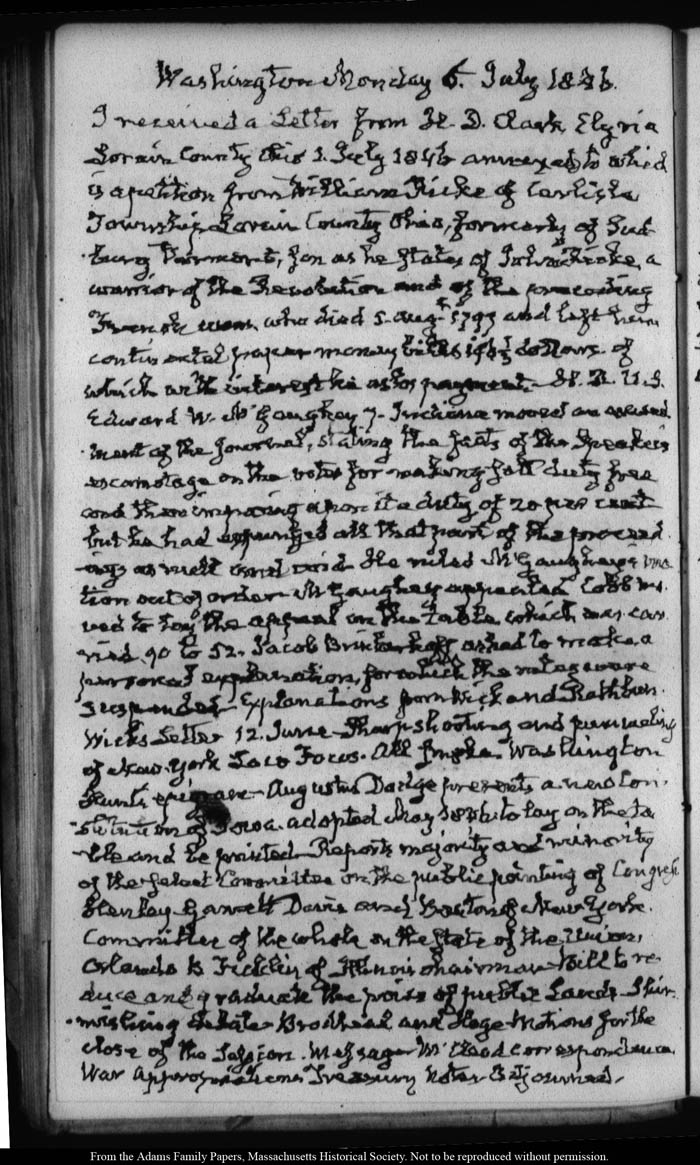 Washington Monday 6. July 1846.
I received a Letter from H. D. Clark, Elyria
Lorain County Ohio 1. July 1846 annexed to which
is a petition from William Ficke of Carlisle
Township Lorain County Ohio, formerly of Sud-
-bury Vermont, son as he states of John, a
warrior of the Revolution and of the preceding
French war, who died 5. Aug. and left him
continental paper money bills dollars of
which with interest he asks payment. H. R. U. S.
Edward W. McGaughey of Indiana moved an amend
-ment of the Journal, stating the facts of the Speaker's
escamotage on the votes for making salt duty free
and then imposing upon it a duty of 20 per cent
but he had expunged all that part of the proceed
-ings as null and void. He ruled McGaughey's mo
tion out of order. McGaughey appealed Cobb mo
ved to lay the appeal on the table, which was car
-ried 90 to 52. Jacob Brinkerhoff asked to make a
personal explanation, for which the rules were
suspended. Explanations from Wick and Rathbun.
Wick's Letter 12. June Sharp shooting and pummeling
of New-York Loco Focos. All Washington
Hunt's epigram. Augustus Dodge presents a new Con-
-stitution of Iowa adopted May 1846 to lay on the ta
-ble and be printed. Reports majority and minority
of the Select Committee on the public printing of Congress
Henley Garrett Davis and of New York.
Committee of the whole on the state of the Union,
Orlando B Ficklin of Illinois chairman Bill to re
duce and graduate the price of public Lands Skir
-mishing debate Brodhead and Hoge Motions for the
close of the Session. Message McLeod correspondence.
War appropriations Treasury notes Adjourned.
From the Adams Family Papers, Massachusetts Historical Society. Not to be reproduced without permission.